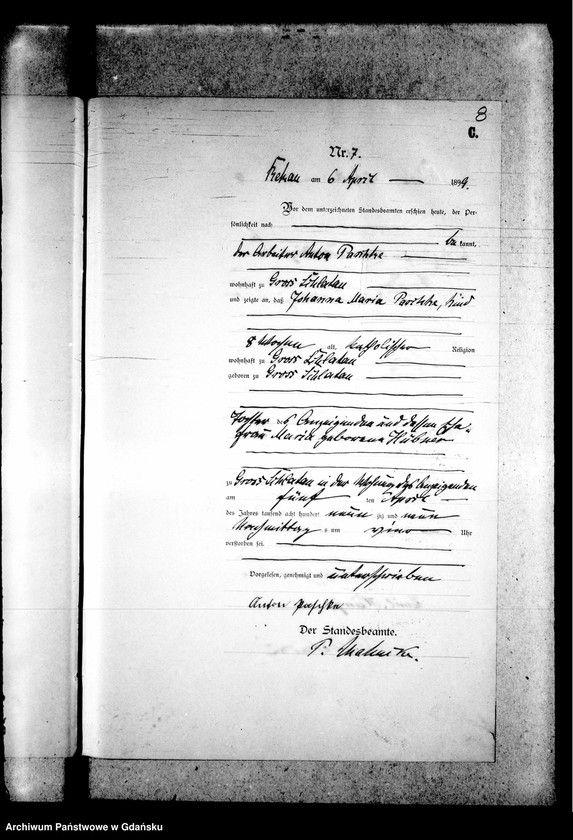 8
C.
Nr. 7.
am 6 April 1899.
Vor dem unterzeichneten Standesbeamten erschien heute, der Per-
sönlichkeit nach
be kannt,
der Arbeiter Anton Paschke
wohnhaft zu Gross
und zeigte an, daß Johanna Maria Paschke, Kind
8 Wochen alt, katholischer Religion
wohnhaft zu Gross
geboren zu Gross
Tochter des Anzeigenden und dessen Ehe-
frau Maria geborene Hübner
zu Gross in der Wohnung des Anzeigenden
am fünf ten April
des Jahres tausend acht hundert neun zig und neun
Nachmittag s um Uhr
verstorben sei.
Vorgelesen, genehmigt und unterschrieben
Anton Paschke
Der Standesbeamte.
Archiwum Państwowe w Gdańsku